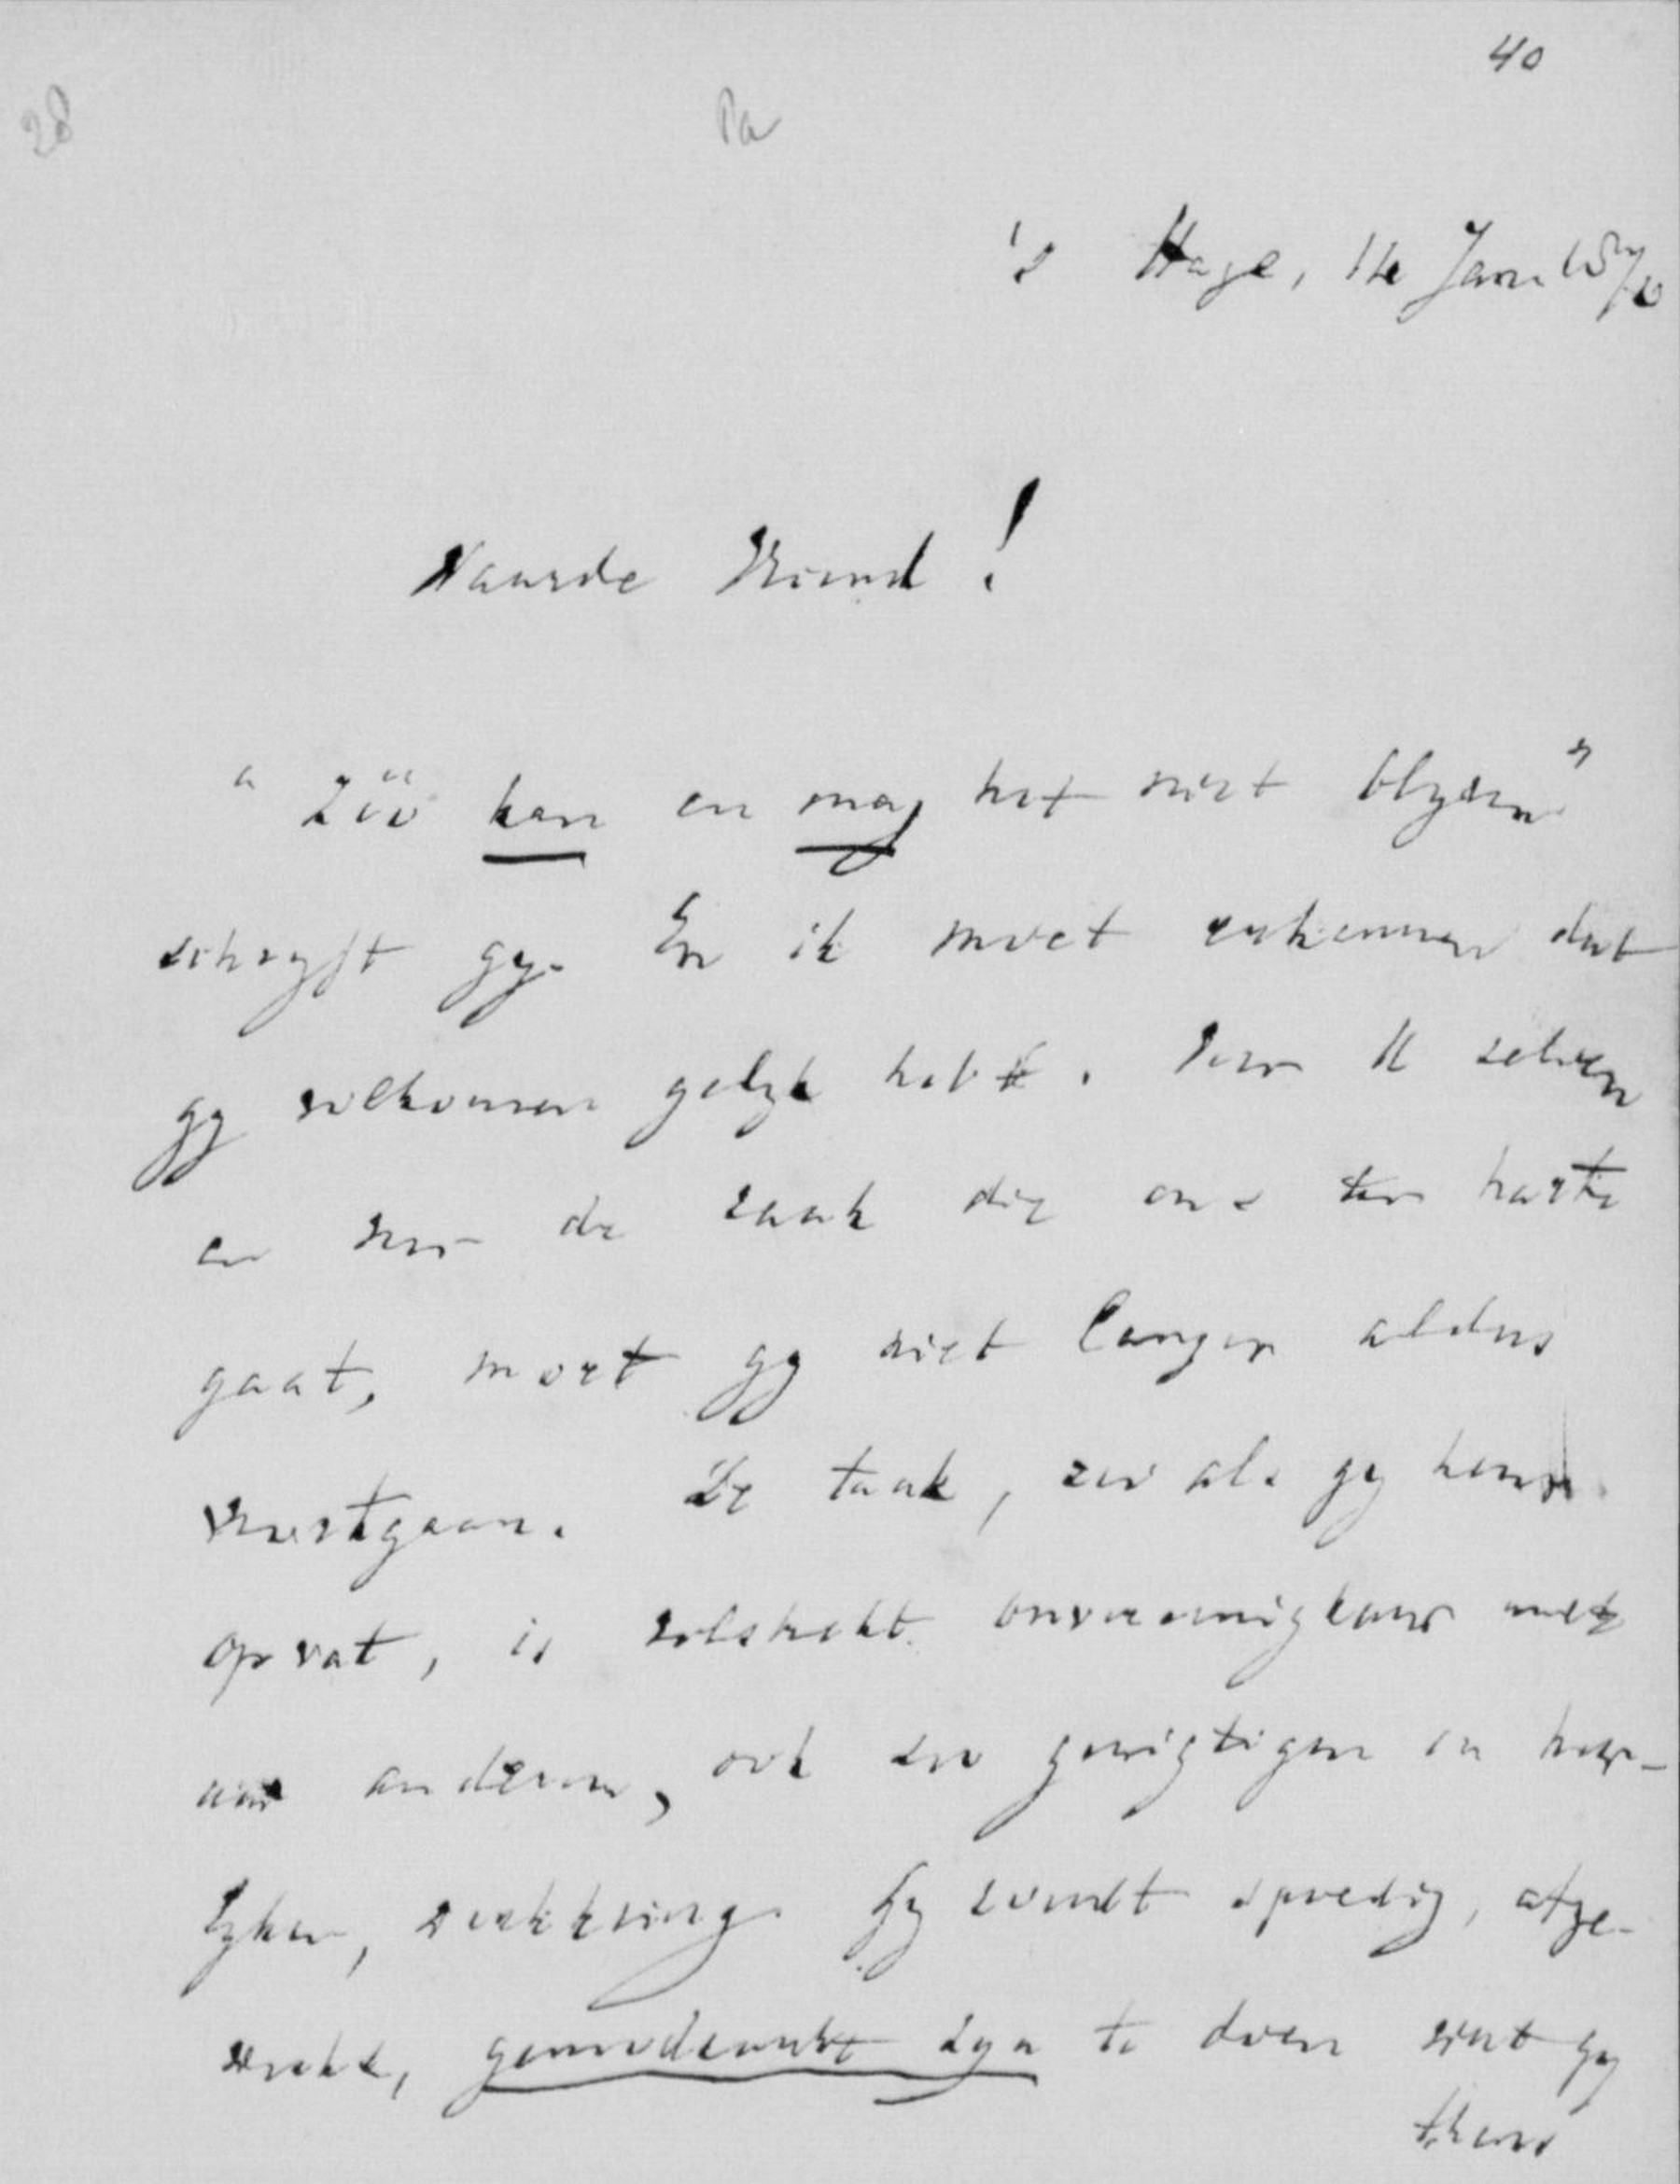 40
28
Pa
's Hage, 14 Jan 18
Waarde Vriend!
"Zóó kan en mag het niet blyven"
schryft gy. En ik moet erkennen dat
gy volkomen gelyk hebt. Voor U zelven
en voor de zaak die ons ter harte
gaat, moet gy niet langer aldus
voortgaan. De taak, zoo als gy haar
opvat, is volstrekt onvereenigbaar met
eene andere, ook zoo gewigtige en heer-
lyke, werkkring. Gy zoudt spoedig, afge-
werkt, genoodzaakt zyn te doen wat gy
thans